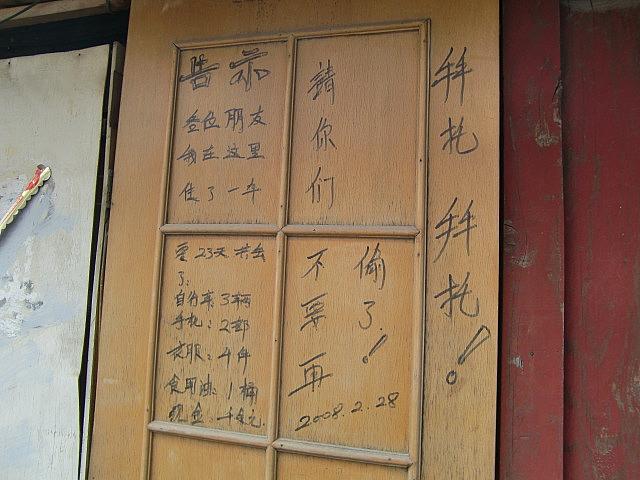 告示
各位朋友
我在这里
住了一年
零23天 共丢
了:
自行车: 3辆
手机: 2部
衣服: 4件
食用油: 1桶
现金:
請你们
不要再
偷了!
2008.2.28
拜托
拜托!